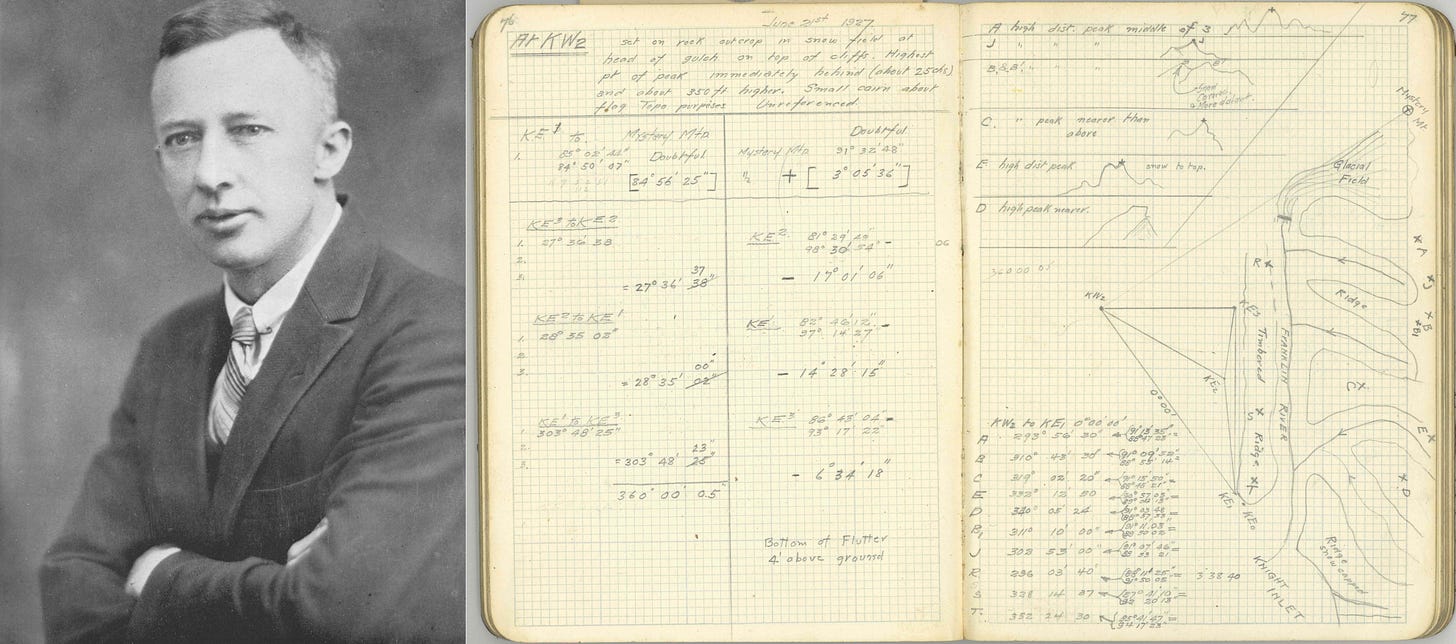 76
June 21st 1927
At KW2 set on rock outcrop in snow field at
head of gulch on top of cliffs. Highest
pt of peak immediately behind (about 25chs)
and about 350 ft higher. Small cairn about
flag Topo purposes Unreferenced.
KE1 to Mystery Mtn
1. 85° 02' 44"
84° 50' 07" Doubtful
[84° 56' 25"]
Doubtful
Mystery Mtn 91° 32' 48"
1/2 + [ 3° 05' 36" ]
KE3 to KE2
1. 27° 36' 38
2.
3. 37
= 27° 36' 38"
KE2 81° 29' 49"
98° 30' 54"
- 17° 01' 06"
06
KE2 to KE1
1. 28° 35' 02"
2.
3. 00"
= 28° 35' 02"
KE1 82° 46' 12"
97° 14' 27"
- 14° 28' 15"
KE1 to KE3
303° 48' 25"
2.
3. 23"
= 303° 48' 25"
360° 00' 0.5"
KE3 86° 43' 04"
93° 17' 22"
- 6° 34' 18"
Bottom of Flutter
4' above ground
77
A high dist. peak middle of 3
J " " "
B, & B1. " "
Snow
More distant.
C. " peak nearer than
above
E high dist peak snow to top.
D high peak nearer.
360 00 05
Mystery
Mt.
Glacial
Field
A
J
B
B1
C
E
D
R
Ridge
KW2
KE3
KE2
KE1
KE0
0°00'
Timbered Ridge
S
FRANKLIN RIVER
Ridge
snow capped
KNIGHT INLET
KW2 to KE1 0°00'00"
A 293° 56' 30"
B 310° 43' 30"
C 319° 02' 20"
E 332° 12 50
D 340° 05 24
B1 311° 10' 00"
J 302 53' 00"
R 296 03' 40' 3°38 40
S 328 14 37
T. 352 24 30